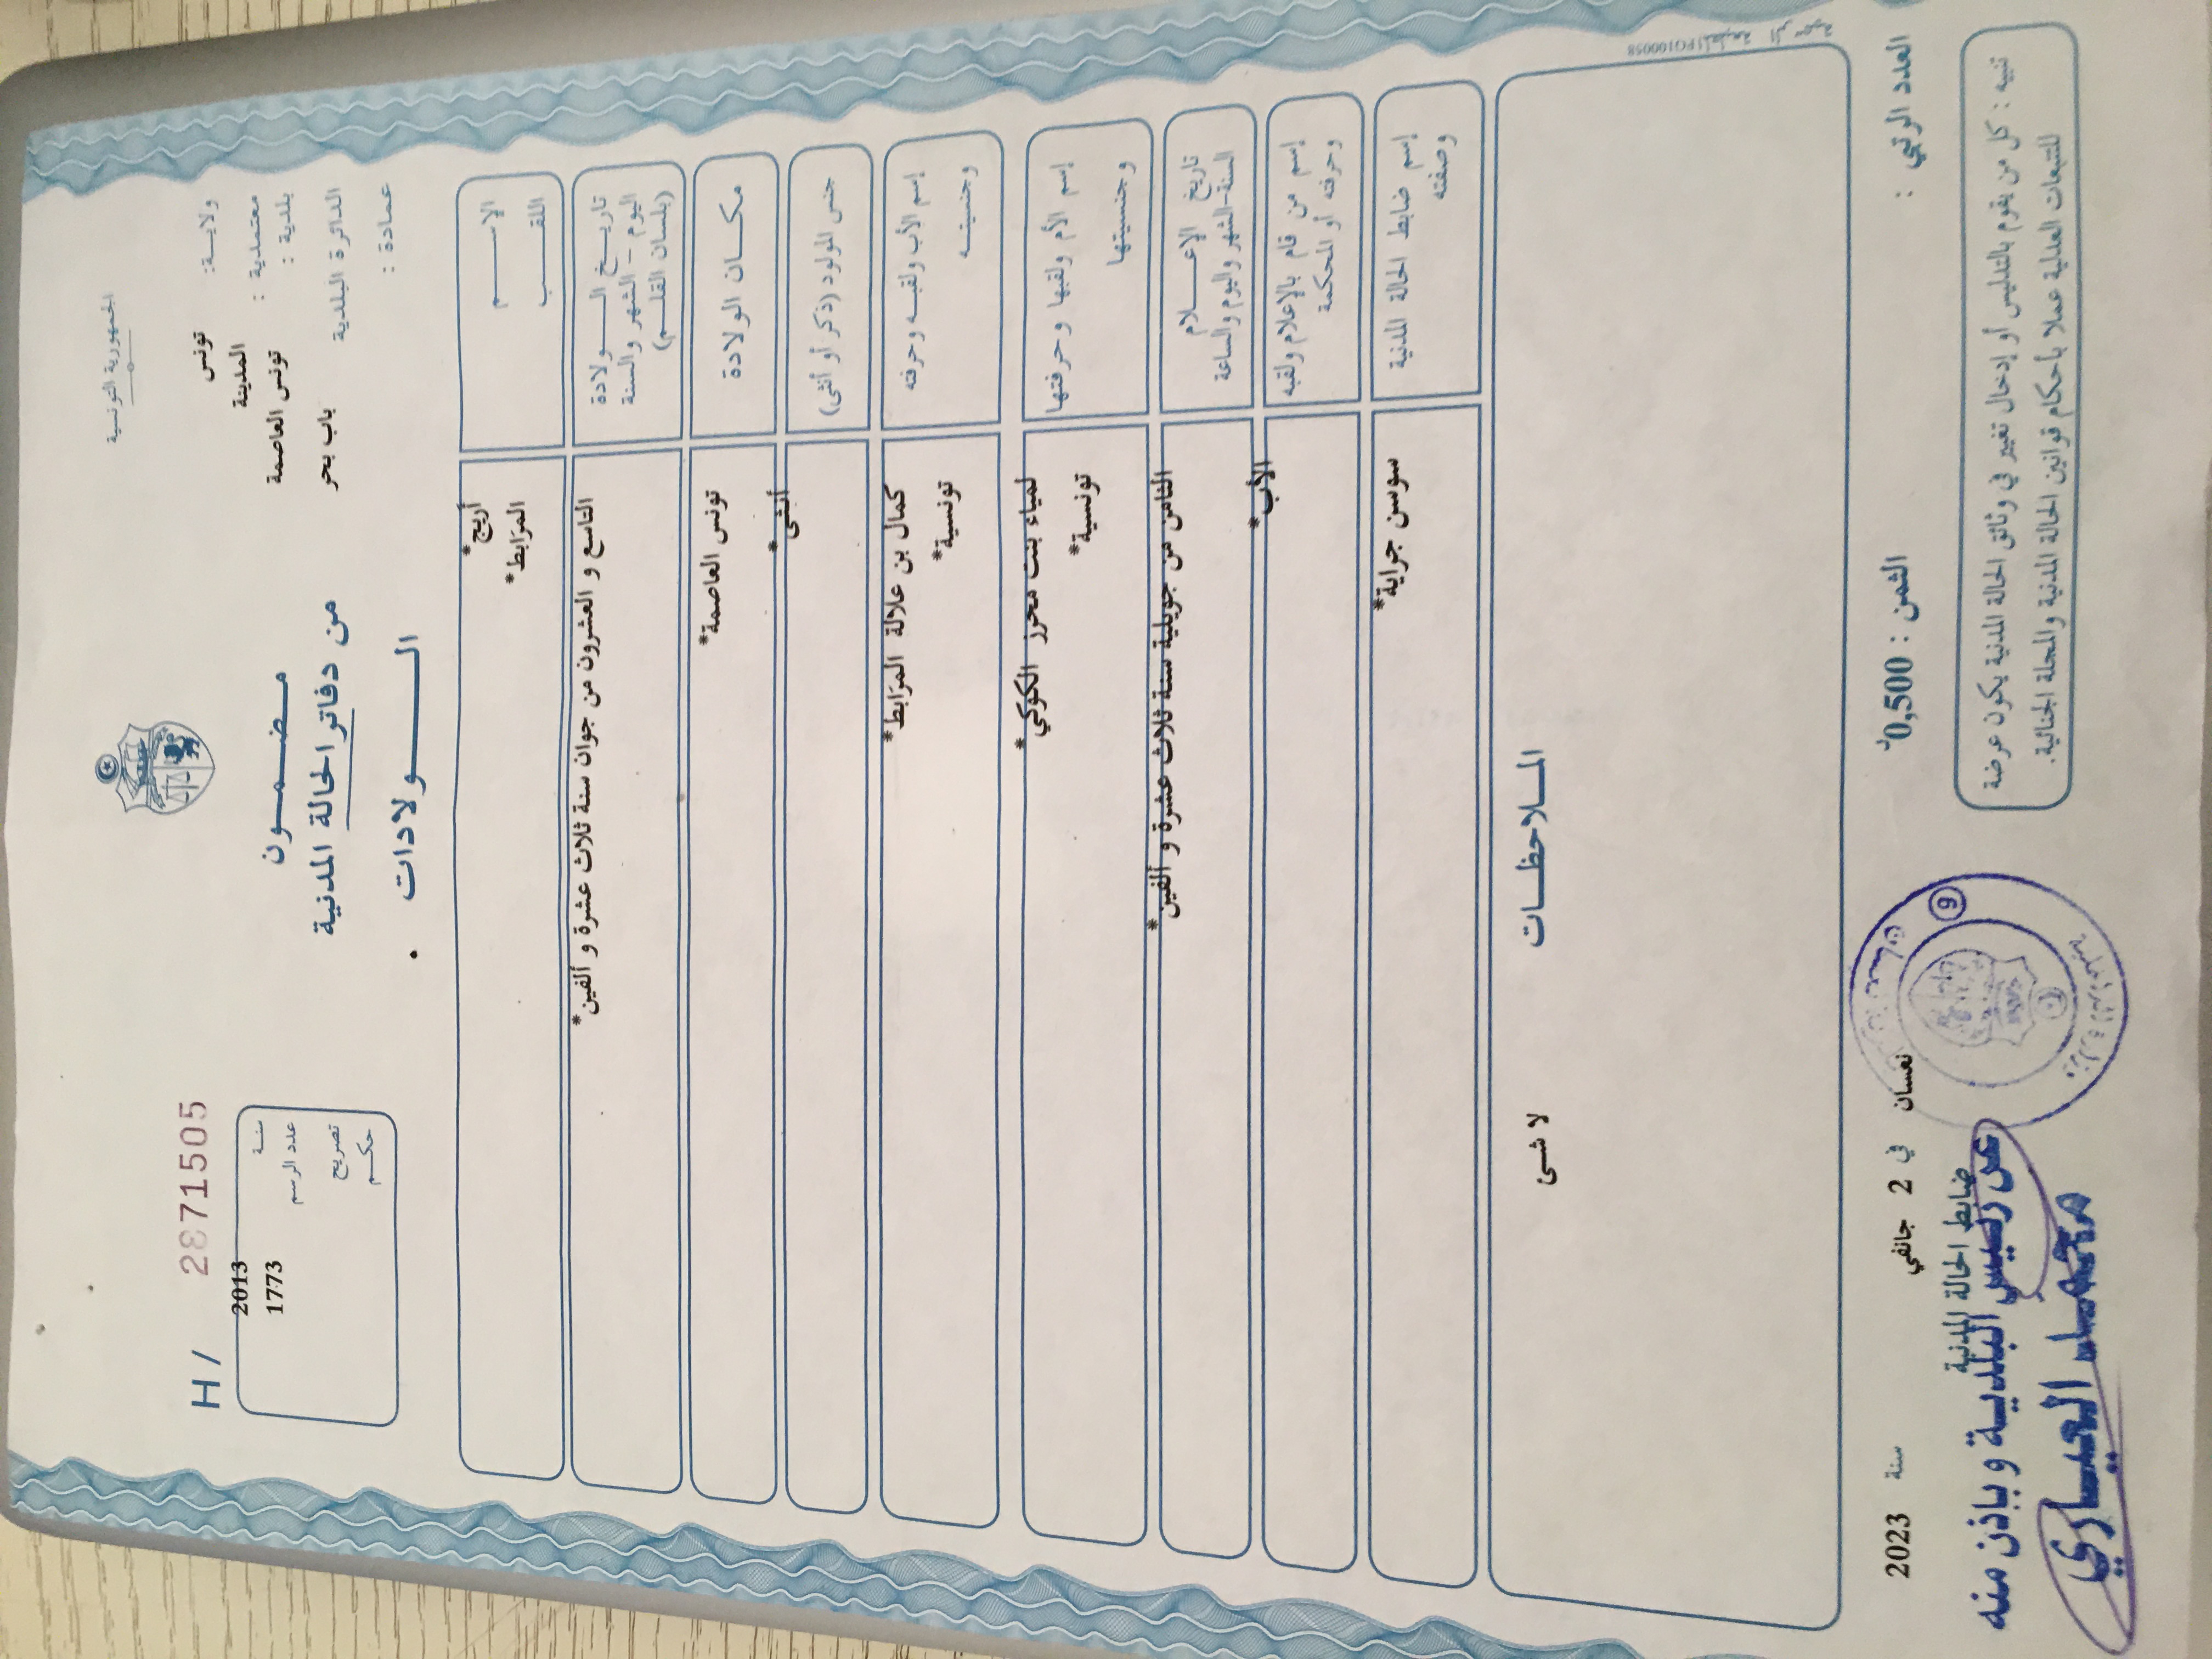 الجمهورية التونسية
ولاية: تونس
معتمدية : المدينة
بلدية : تونس العاصمة
الدائرة البلدية باب بحر
عمادة :
مضمون
من دفاتر الحالة المدنية
الولادات
H/ 28715505
سنة 2013
عدد الرسم 1773
تصريح
حكم
الإسم أريج*
اللقب المرَابط*
تاريخ الولادة
اليوم - الشهر والسنة
(بلسان القلم)
التاسع و العشرون من جوان سنة ثلاث عشرة و ألفين*
مكان الولادة تونس العاصمة*
جنس المولود (ذكر أو أنثى) أنثى*
إسم الأب ولقبه وحرفته كمال بن علالة المرَابط*
وجنسيته تونسية*
إسم الأم ولقبها وحرفتها لمياء بنت محرز الكوكي*
وجنسيتها تونسية*
تاريخ الإعلام
السنة-الشهر واليوم والساعة
الثامن من جويلية سنة ثلاث عشرة و ألفين*
إسم من قام بالإعلام ولقبه
وحرفته أو المحكمة
الأب*
إسم ضابط الحالة المدنية
وصفته
سوسن جراية*
الملاحظات
لا شئ
العدد الرتبي :
الثمن : 0,500د
نعسان في 2 جانفي سنة 2023
ضابط الحالة المدنية
عن رئيس البلدية و بإذن منه
محمد العياري
9
تنبيه : كل من يقوم بالتدليس أو إدخال تغيير في وثائق الحالة المدنية يكون عرضة
للتتبعات العدلية عملا بأحكام قوانين الحالة المدنية والمجلة الجنائية.